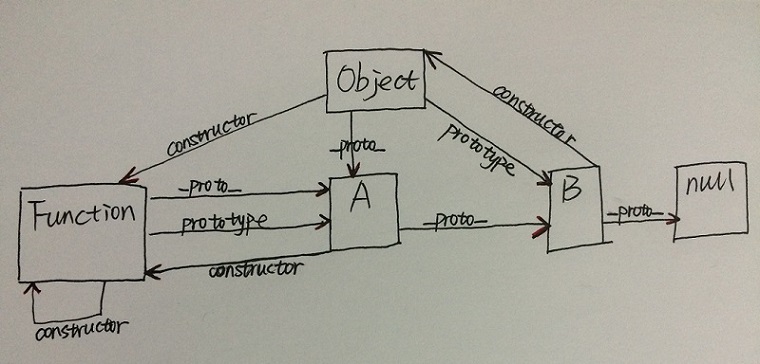 Object
constructor
constructor
_proto_
prototype
Function
_proto_
prototype
A
_proto_
B
_proto_
null
constructor
constructor